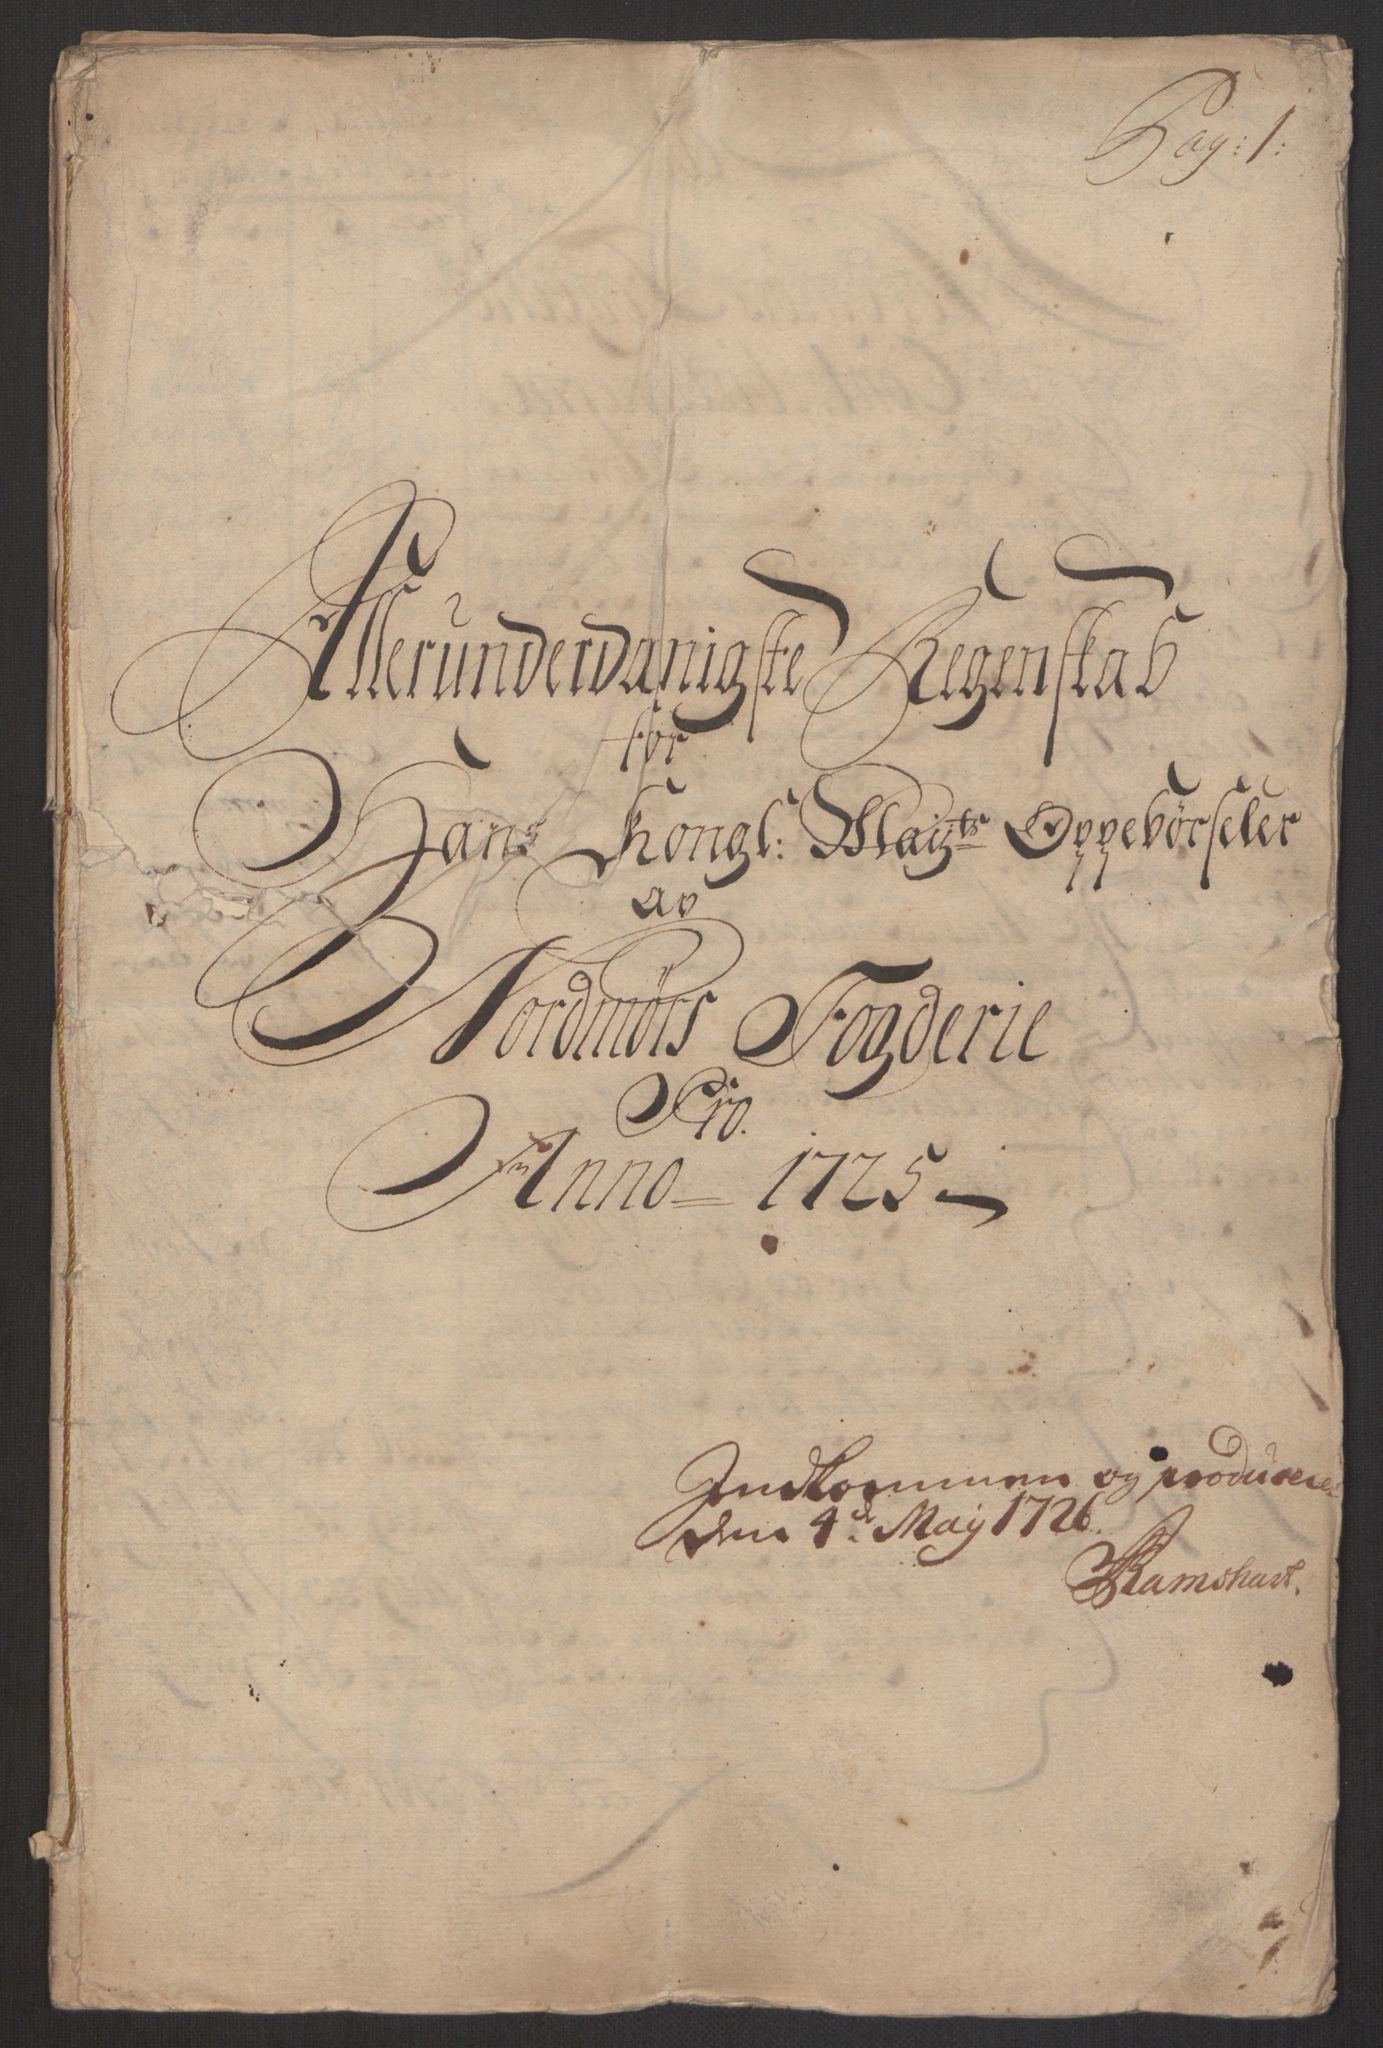 Pag: 1:
Allerunderdanigste Regenskab
for
Hans Kongl: Mayts Oppebørseler
av
Nordmørs Fogderie
Pro.
Anno 1725
Indkommen og produceret
den 4de May 1726.
Ramshart.